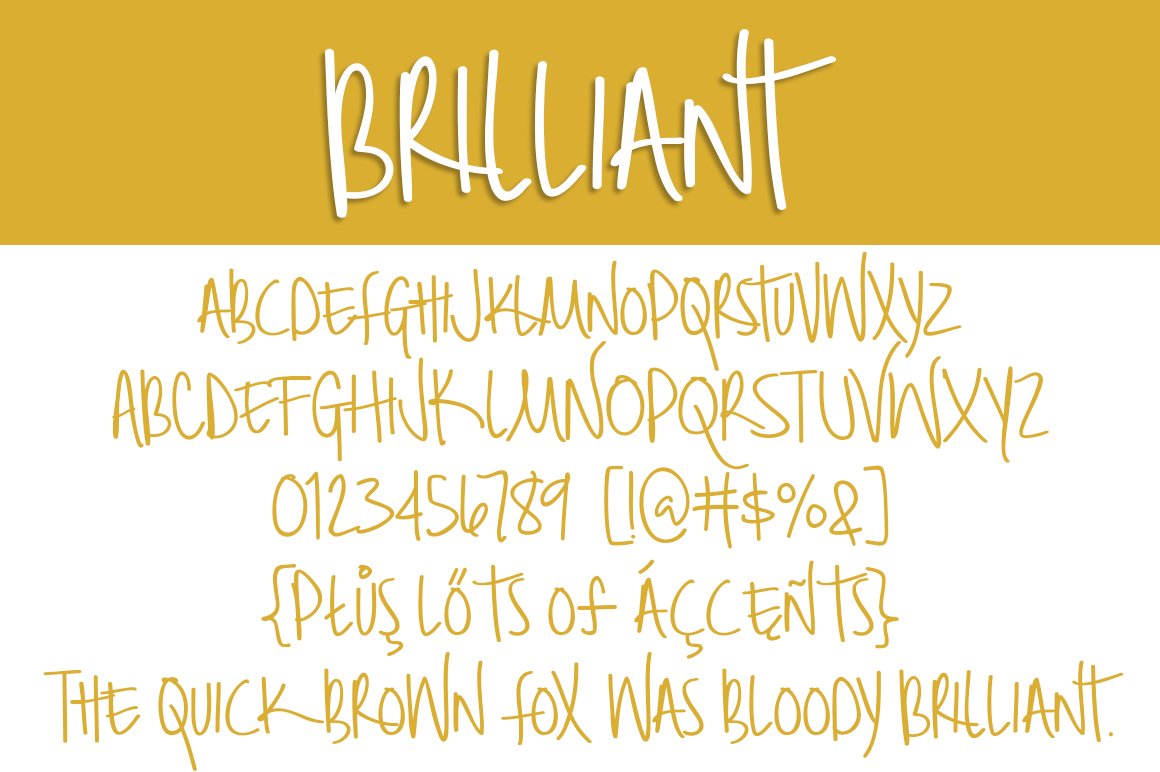 BRILLIANT
ABCDEfGHIJKLMNOPQRSTUVWXYZ
ABCDEFGHIJKLMNOPQRSTUVWXYZ
0123456789 [!@#$%&]
{PŁůş LőTS Of ÁÇCĘÑTS}
THE QUICK BROWN fOX WAS BLOODY BRILLIANT.